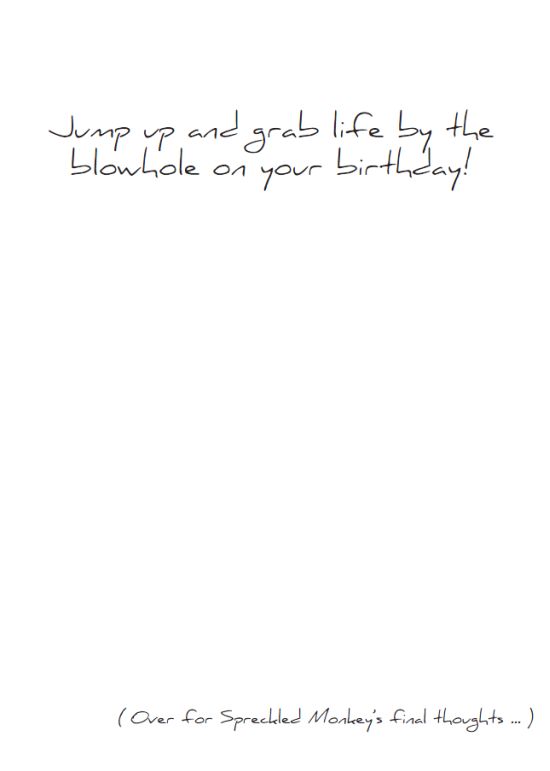 Jump up and grab life by the
blowhole on your birthday!
( Over for Spreckled Monkey's final thoughts ... )